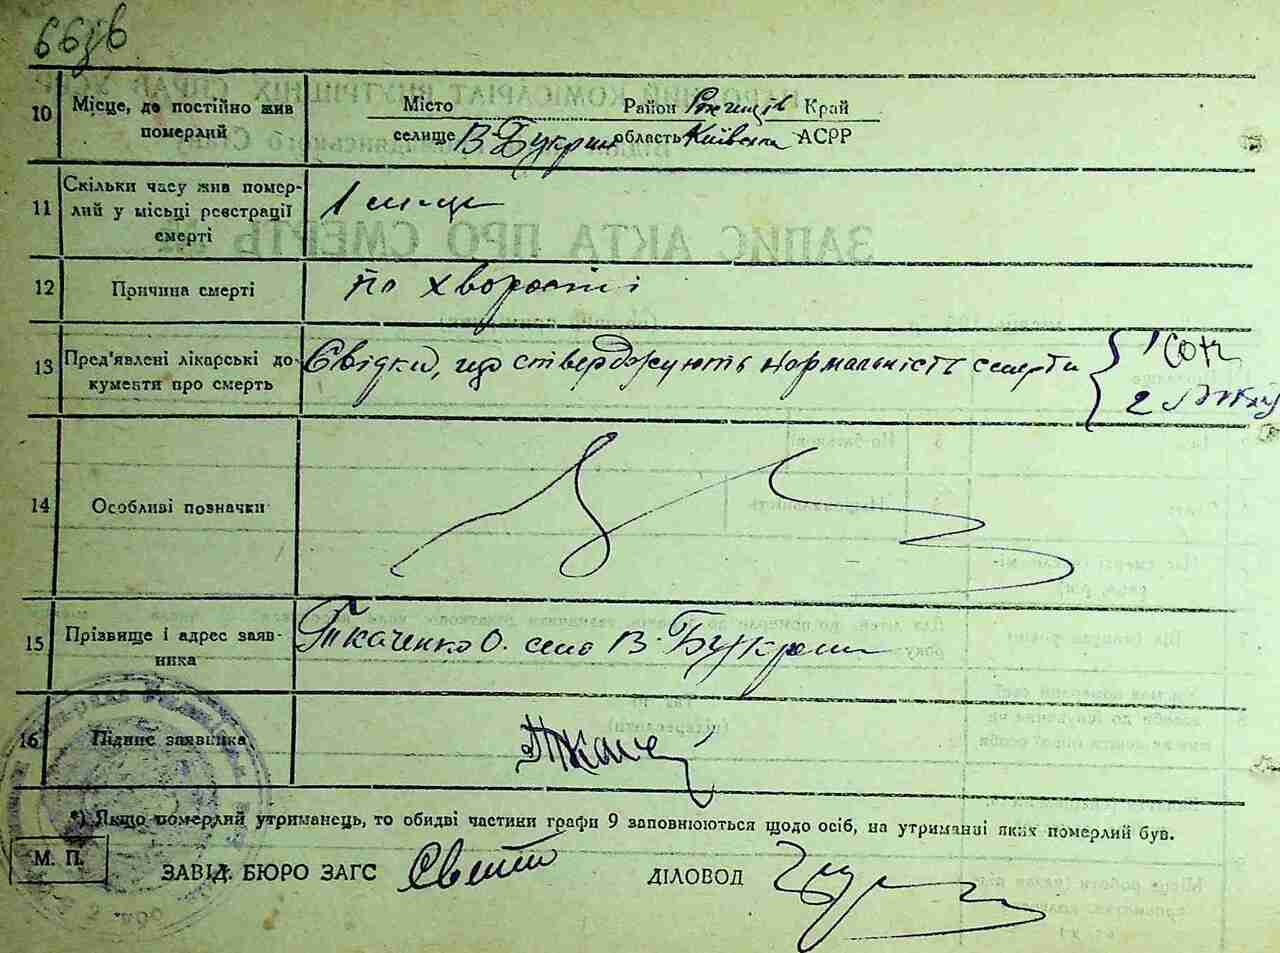 66зв
10 Місце, де постійно жив Місто Район Ржищів Край
померлий селище В-Букрин область Київська АСРР
Скільки часу жив помер-
11 лий у місьці реєстрації 1 місяць
смерті
12 Причина смерті по хворости
13 Пред'явлені лікарські до- Свідки, що стверджують нормальність смерти { 1
кументи про смерть 2
14 Особливі позначки
15 Прізвище і адрес заяв- Ткаченко О. село В-Букрин
ника
16 Підпис заявника Ткаче
*) Якщо померлий утриманець, то обидві частини графи 9 заповнюються щодо осіб, на утриманні яких померлий був.
М. П.
ЗАВІД. БЮРО ЗАГС ДІЛОВОД